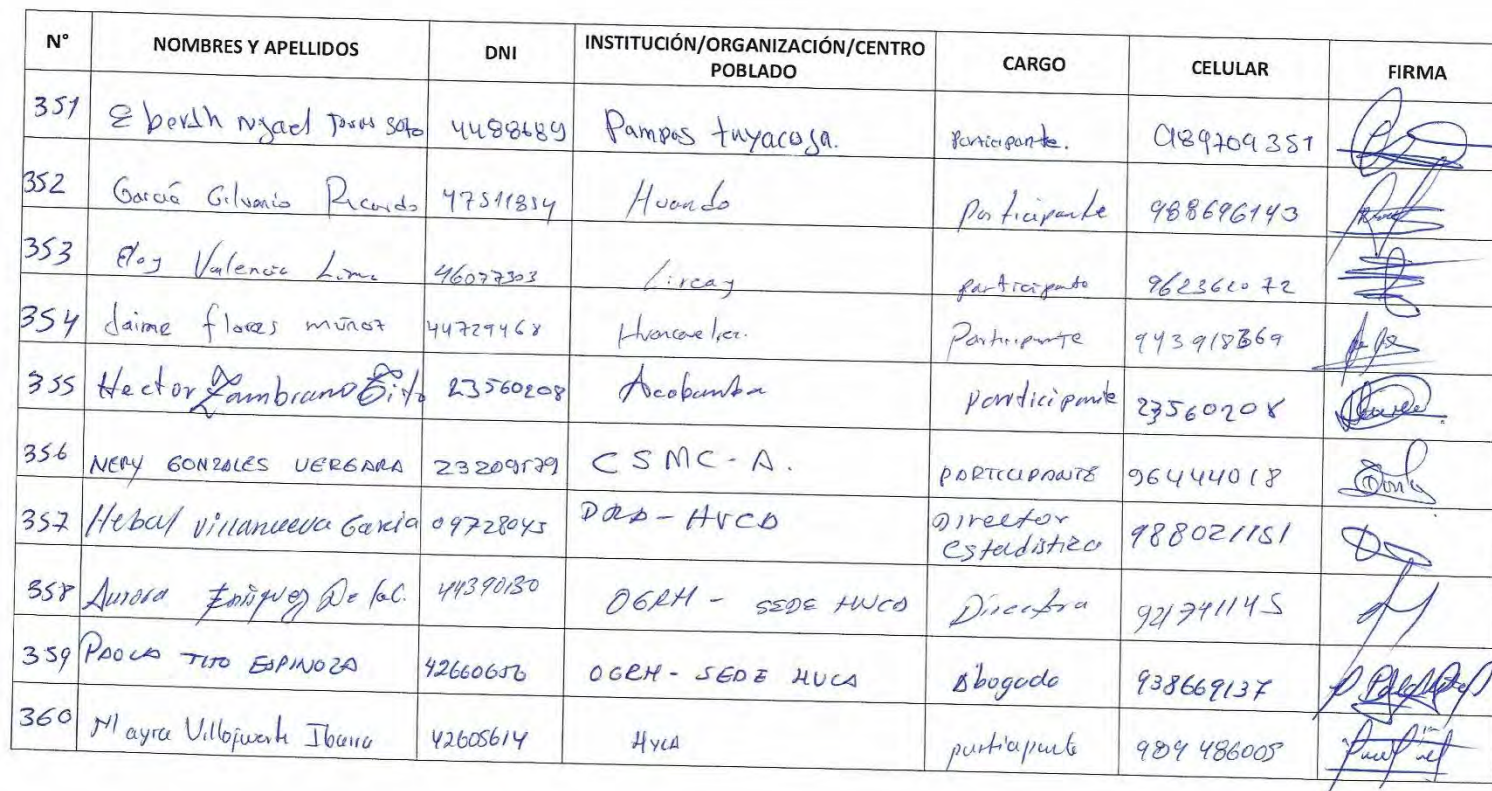 N° NOMBRES Y APELLIDOS DNI INSTITUCIÓN/ORGANIZACIÓN/CENTRO POBLADO CARGO CELULAR FIRMA
351 soto 4488689 Pampas participante. 989709351
352 García Ricardo 47511854 Huando Participante 988696143
353 Eloy Valencia Lima 46077303 Lircay participante 962362072
354 Jaime flores muñoz 44729468 Participante
355 Hector Zambrano Tito 23560208 Acobamba participante 23560208
356 NERY GONZALES VERGARA 23209579 CSMC-A. PARTICIPANTE 96444018
357 Villanueva Garcia 09728045 HVCA Director estadistica 988021151
358 Aurora De la C. 44390130 OGRH - SEDE HVCA Directora 921741145
359 PAOLA TITO ESPINOZA 42660656 OGRH - SEDE HVCA Abogada 938669137
360 Mayra 42605614 HVCA participante 989486005